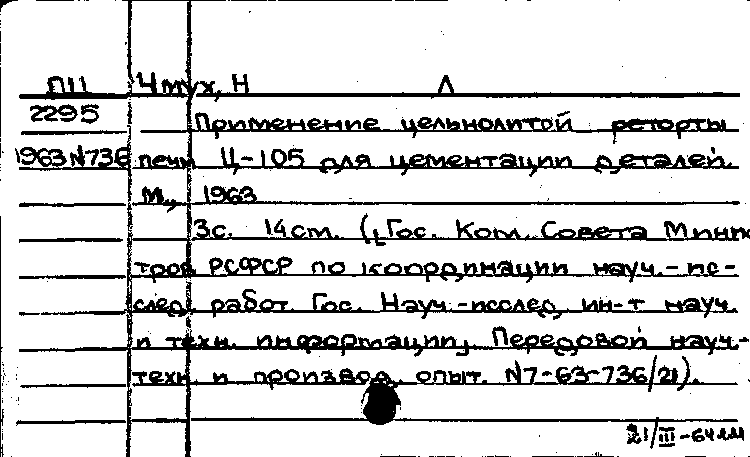 ПЦ Чмух, Н Л
2295 Применение цельнолитой реторты
1963 N736 печи Ц-105 для цементации деталей.
М., 1963
3с. 14см. ([Гос. Ком. Совета Минис
тров РСФСР по координации науч.-ис-
след. работ. Гос. Науч.-исслед. ин-т науч.
и техн. информации]. Передовой науч.-
техн. и производ. опыт. N7-63-736/21).
21/III-64